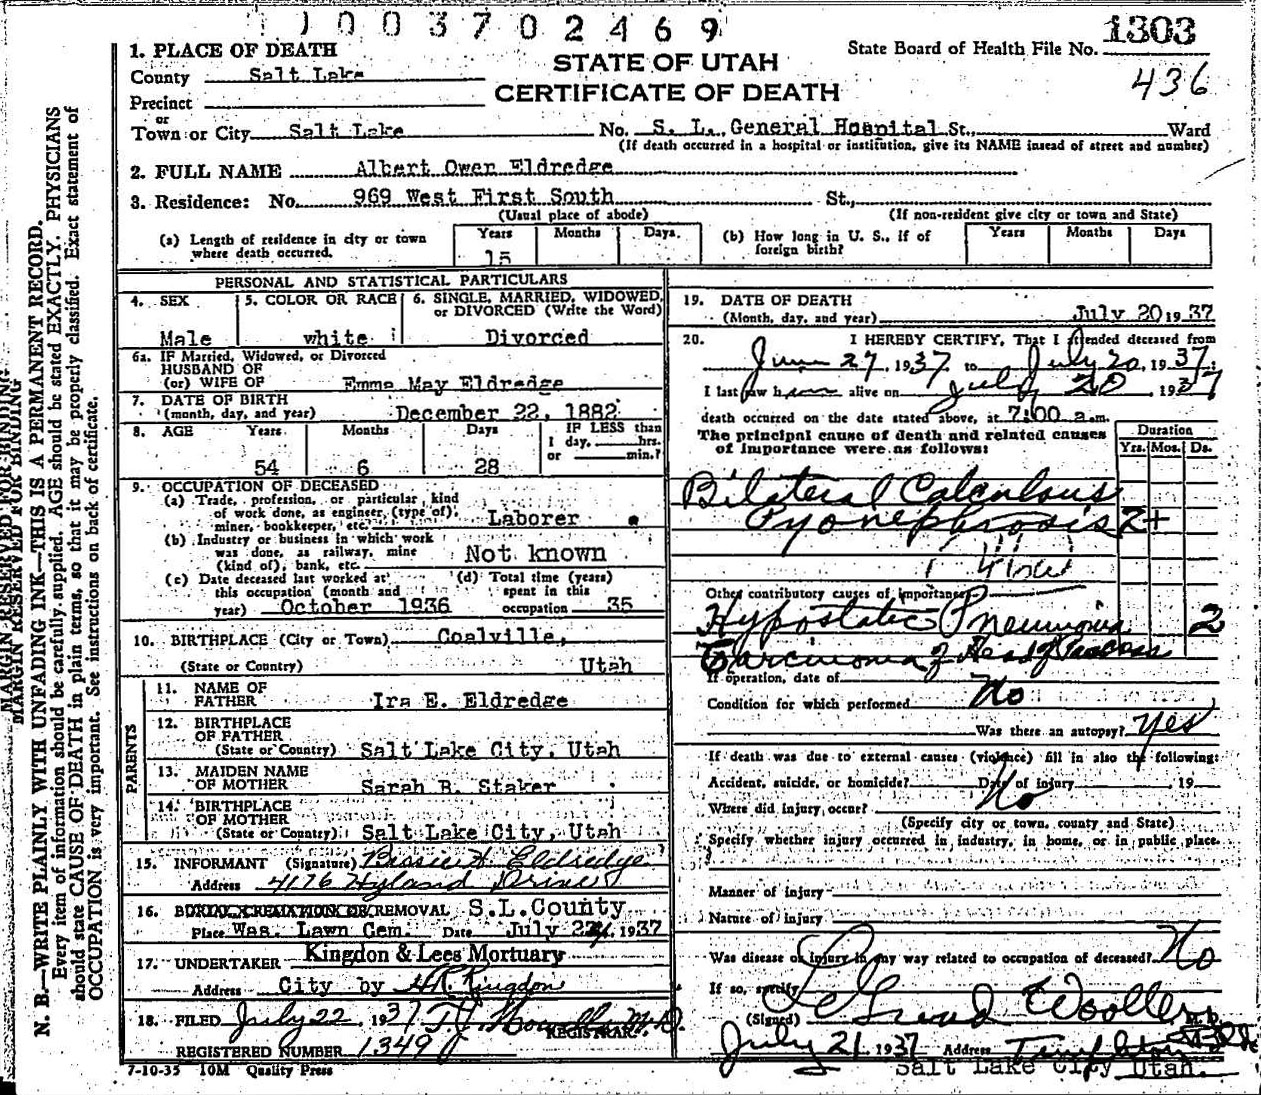 1003702469
1303
1. PLACE OF DEATH
State Board of Health File No.
STATE OF UTAH
County Salt Lake
436
CERTIFICATE OF DEATH
Precinct
or
Town or City Salt Lake No. S. L. General Hospital St., Ward
(If death occurred in a hospital or institution, give its NAME insead of street and number)
2. FULL NAME Albert Owen Eldredge
3. Residence: No. 969 West First South St.,
(Usual place of abode) (If non-resident give city or town and State)
(a) Length of residence in city or town where death occurred. Years 15 Months Days.
(b) How long in U. S., if of foreign birth? Years Months Days
PERSONAL AND STATISTICAL PARTICULARS
4. SEX Male
5. COLOR OR RACE white
6. SINGLE, MARRIED, WIDOWED, or DIVORCED (Write the Word) Divorced
6a. IF Married, Widowed, or Divorced
HUSBAND OF
(or) WIFE OF Emma May Eldredge
7. DATE OF BIRTH
(month, day, and year) December 22, 1882
8. AGE Years 54 Months 6 Days 28
IF LESS than
1 day, hrs.
or min.?
9. OCCUPATION OF DECEASED
(a) Trade, profession, or particular kind
of work done, as engineer, (type of),
miner, bookkeeper, etc. Laborer
(b) Industry or business in which work
was done, as railway, mine
(kind of), bank, etc. Not known
(c) Date deceased last worked at
this occupation (month and
year) October 1936
(d) Total time (years)
spent in this
occupation 35
10. BIRTHPLACE (City or Town) Coalville,
(State or Country) Utah
PARENTS
11. NAME OF
FATHER Ira E. Eldredge
12. BIRTHPLACE
OF FATHER
(State or Country) Salt Lake City, Utah
13. MAIDEN NAME
OF MOTHER Sarah B. Staker
14. BIRTHPLACE
OF MOTHER
(State or Country) Salt Lake City, Utah
15. INFORMANT (Signature) Eldredge
Address 4176 Hyland Drive
16. BURIAL, CREMATION OR REMOVAL S.L. County
Place Was. Lawn Cem. Date July 1937
17. UNDERTAKER Kingdon & Lees Mortuary
Address City by Kingdon
18. FILED July 22, 1937 M.D.
REGISTRAR
REGISTERED NUMBER 1349
7-10-35 10M Quality Press
19. DATE OF DEATH
(Month, day, and year) July 20 1937
20. I HEREBY CERTIFY, That I attended deceased from
June 27 1937 to July 20, 1937.
I last saw him alive on July 20 1937
death occurred on the date stated above, at 7:00 a.m.
The principal cause of death and related causes
of importance were as follows:
Duration
Yrs. Mos. Ds.
Bilateral Calculous
Pyonephrosis 2+
Other contributory causes of importance
Hypostatic Pneumonia 2
Carcinoma of Head of Pancreas
If operation, date of
Condition for which performed No
Was there an autopsy? Yes
If death was due to external causes (violence) fill in also the following:
Accident, suicide, or homicide? Date of injury , 19
No
Where did injury occur?
(Specify city or town, county and State)
Specify whether injury occurred in industry, in home, or in public place.
Manner of injury
Nature of injury
Was disease or injury in any way related to occupation of deceased? No
If so, specify
(Signed) LeGrand Woolley M.D.
July 21 1937 Address Templeton Bldg
Salt Lake City Utah.
MARGIN RESERVED FOR BINDING
MARGIN RESERVED FOR BINDING
N. B.—WRITE PLAINLY WITH UNFADING INK—THIS IS A PERMANENT RECORD.
Every item of information should be carefully supplied. AGE should be stated EXACTLY. PHYSICIANS
should state CAUSE OF DEATH in plain terms, so that it may be properly classified. Exact statement of
OCCUPATION is very important. See instructions on back of certificate.